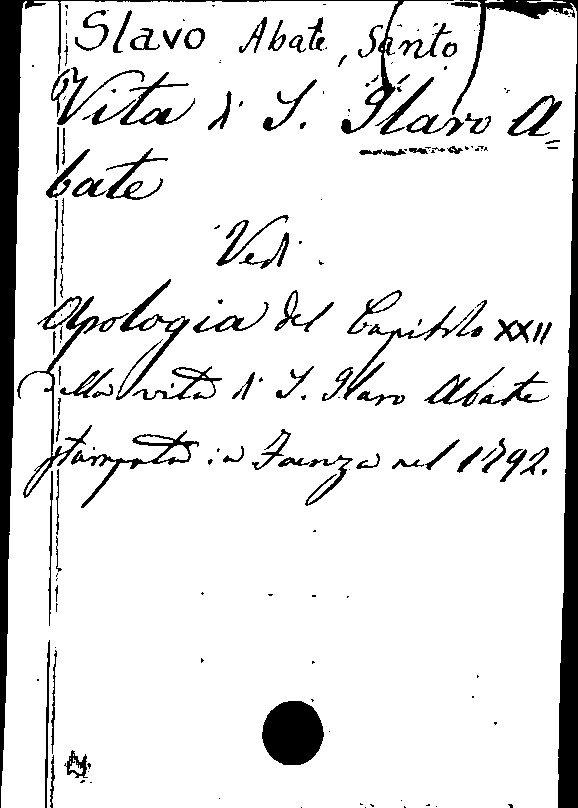 Slavo Abate, Santo
Vita di S. Ilaro A=
bate
Vedi
Apologia del Capitolo XXII
della vita di S. Ilaro Abate
stampata in Faenza nel 1792.